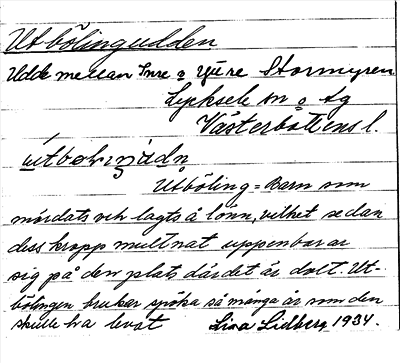 Utbölingudden
Udde mellan Inre o Yttre Stormyren
Lycksele sn o tg
Västerbottens l.
Utböling = Barn som
mördats och lagts å lönn, vilket sedan
dess kropp multnat uppenbarar
sig på den plats där det är dolt. Ut-
bölingen brukar spöka så många år som den
skulle ha levat Lisa Lidberg 1934.